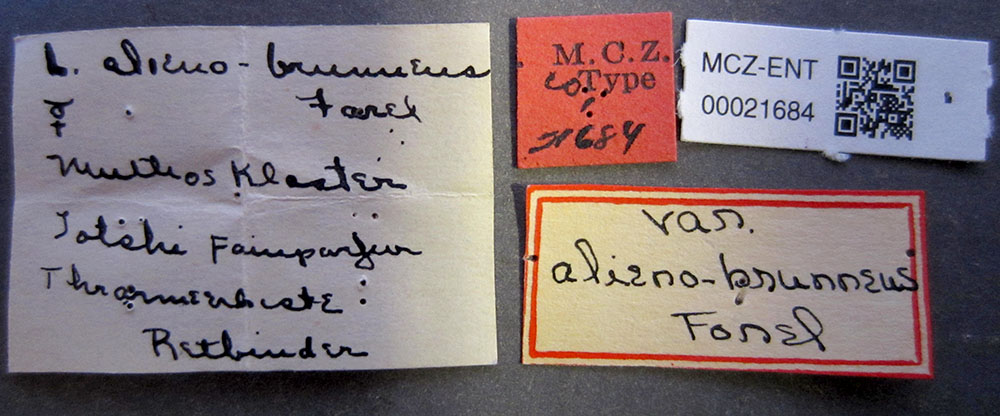 L. alieno-brunneus
☿ Forel
Mullios Kloster
Totski Fainparfur
Thrarmeerkiste
Retbinder
M.C.Z.
CoType
21684
MCZ-ENT
00021684
var.
alieno-brunneus
Forel